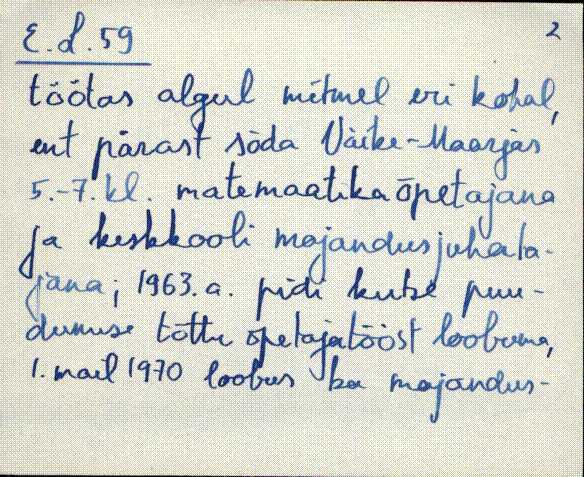 E.d.59
2
töötas algul mitmel eri kohal,
ent pärast sõda Väike-Maarjas
5.-7. kl. matemaatikaõpetajana
ja keskkooli majandusjuhata-
jana; 1963. a. pidi kutse puu-
dumise tõttu õpetajatööst loobuma,
1. mail 1970 loobus ka majandus-